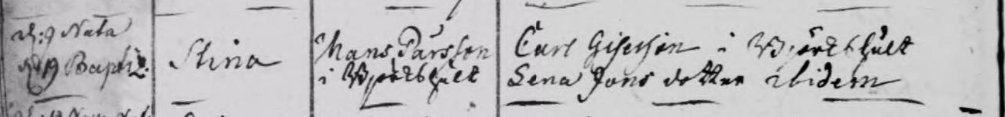 d: 9 Nata
d 19 Bapt:
Stina
Måns Pärsson
i Björkhult
Carl Giselson i Björkhult
Lena Jons dotter ibidem